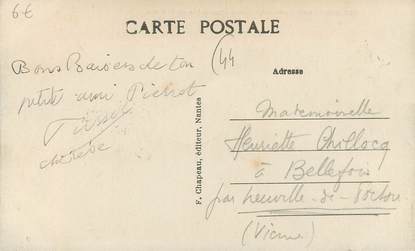 6€
CARTE POSTALE
(44
Adresse
Bons Baisers de ton
petit ami Pierrot
F. Chapeau, éditeur, Nantes
Mademoiselle
Henriette
à Bellefois
par Neuville-de-Poitou
(Vienne)